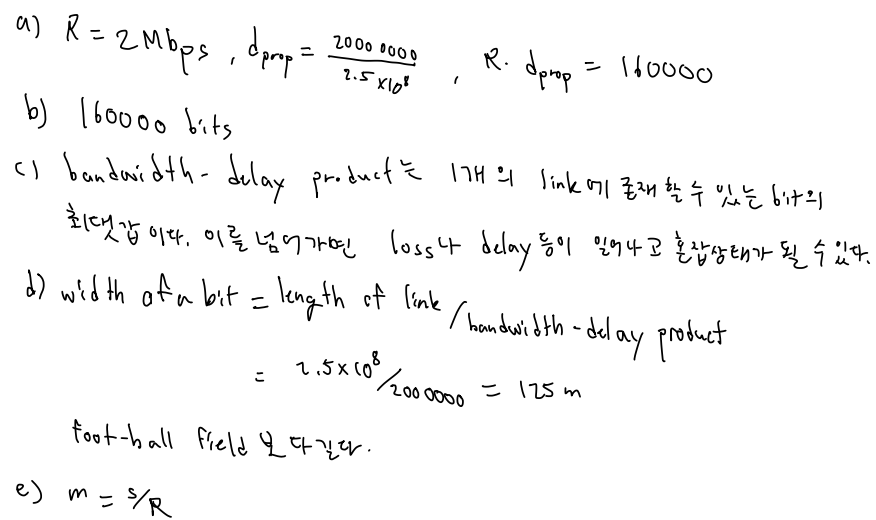 a) R = 2Mbps, dprop = 20000000 / 2.5×10⁸, R· dprop = 160000
b) 160000 bits
c) bandwidth - delay product는 1개의 link에 존재할 수 있는 bit의
최댓값이다. 이를 넘어가면 loss나 delay 등이 일어나고 혼잡상태가 될 수 있다.
d) width of a bit = length of link / bandwidth - delay product
= 2.5×10⁸ / 2000000 = 125 m
foot-ball field 보다 길다.
e) m = s/R